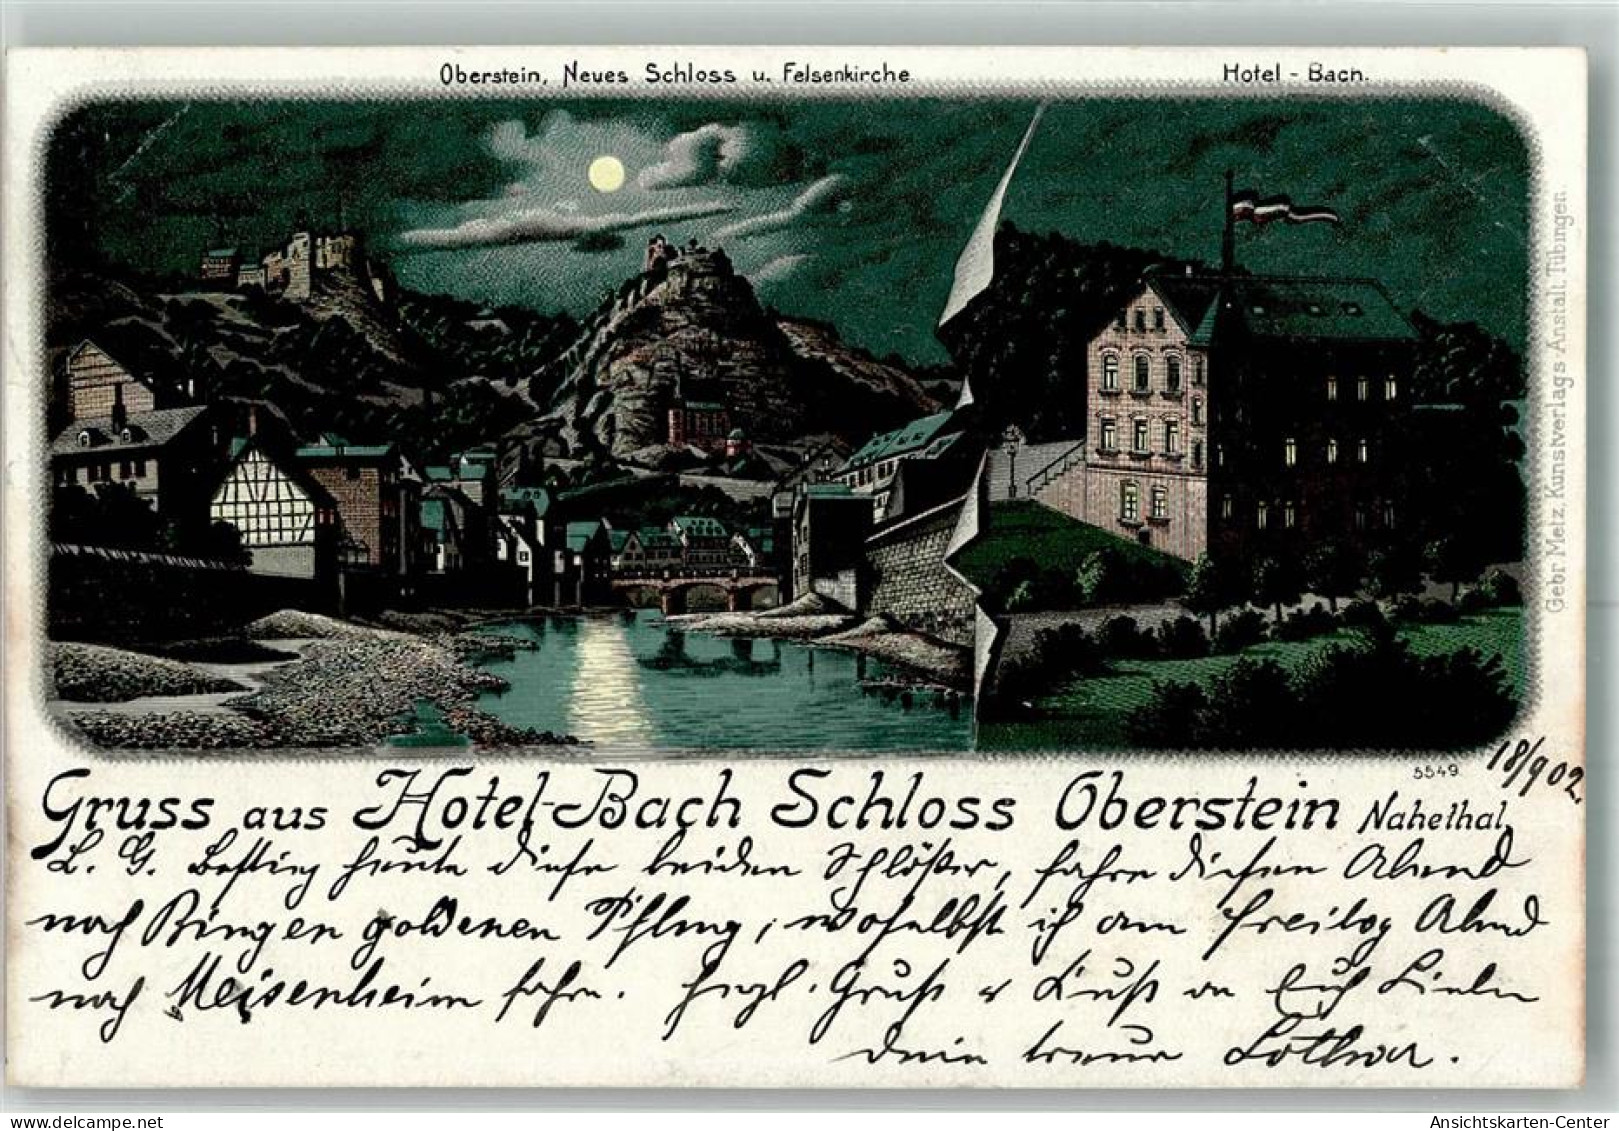 Oberstein, Neues Schloss u. Felsenkirche
Hotel - Bach.
Gebr Metz, Kunstverlags-Anstalt, Tübingen.
5549
18/9 02.
Gruss aus Hotel-Bach Schloss Oberstein Nahethal,
L. G. Bestieg heute diese beiden Schlößer, fahre diesen Abend
nach Bingen goldenen Pflug, woselbst ich am Freitag Abend
nach Meisenheim fahre. Herzl. Gruß & Kuß an Euch Lieben
Dein treuer Lothar.
Ansichtskarten-Center